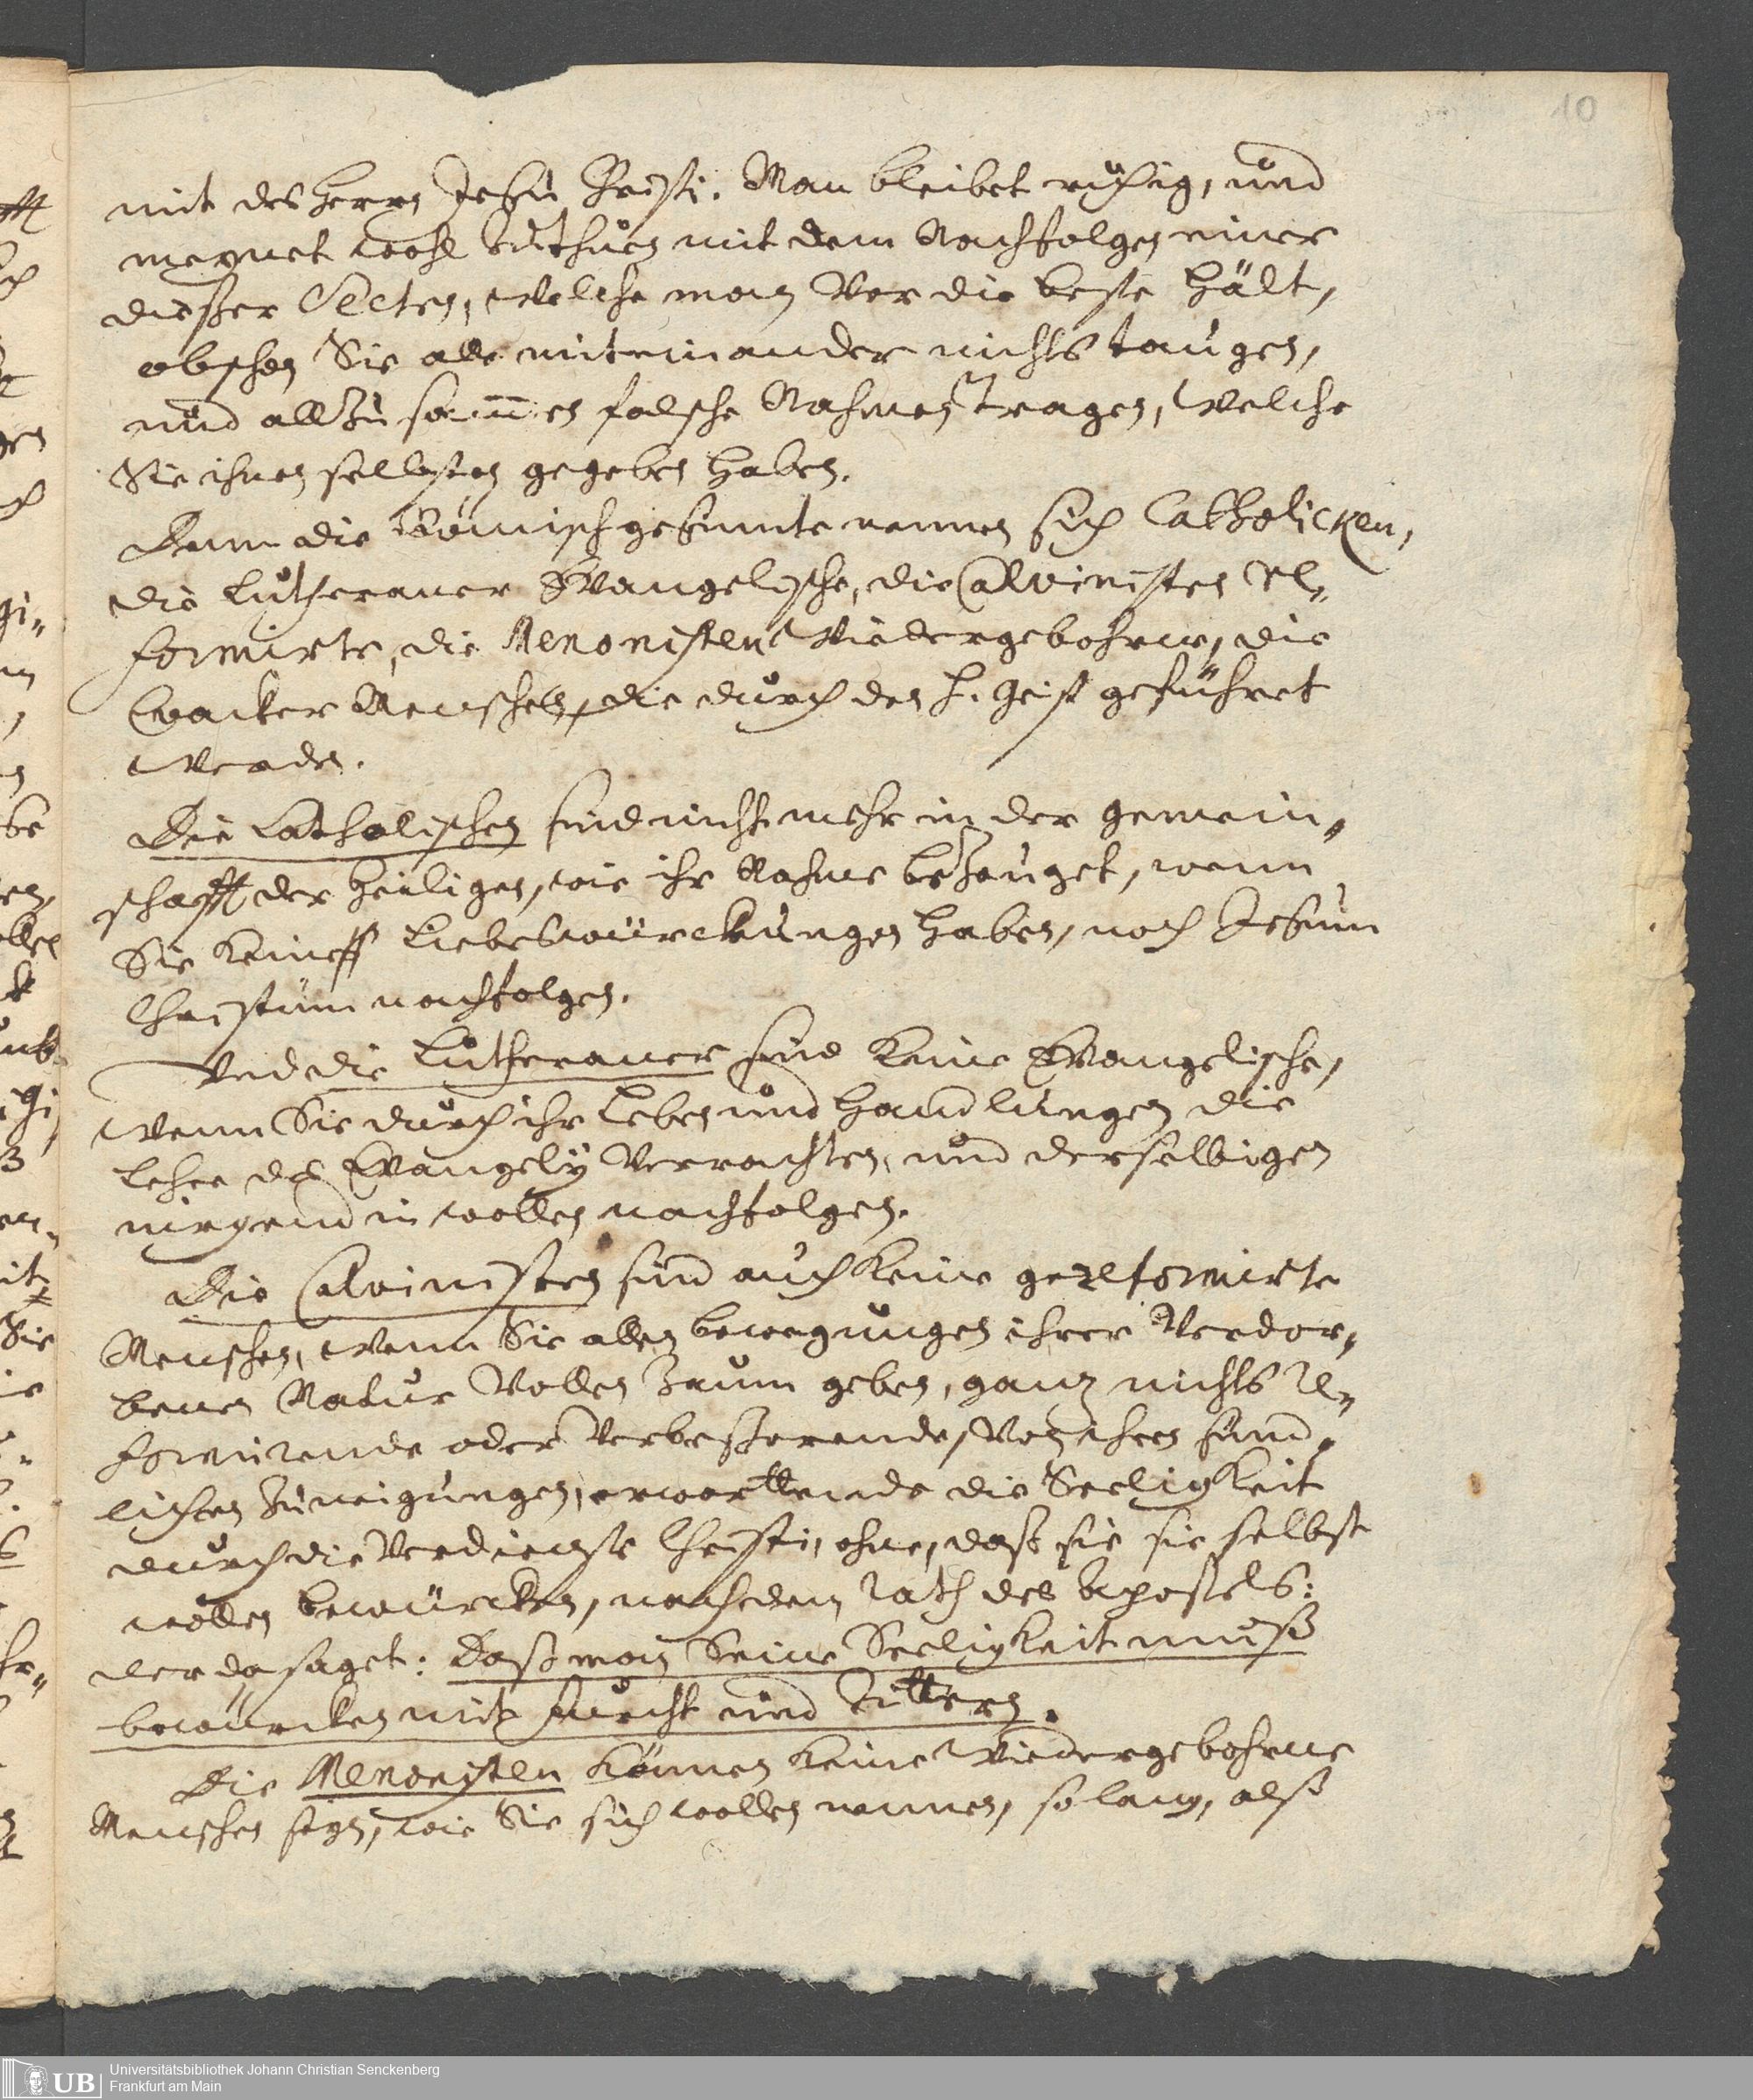 10
mit des Herrn Jesu Christi. Man bleibet ruhig, und
meynet wohl zu thun mit dem Nachfolgen einer
dießer Secten, welche man vor die beste hält,
obschon Sie alle miteinander nichts taugen,
und allzusammen falsche Nahmen tragen, welche
Sie ihnen selbsten gegeben haben.
Denn die Römischgesinnte nennen sich Catholicken,
die Lutheraner Evangelische, die Calvinisten Re„
formirte, die Menonisten Wiedergebohrne, die
Quacker Menschen, die durch den H. Geist geführet
werden.
Die Catholischen sind nicht mehr in der gemein„
schafft der Heiligen, wie ihr Nahme bezeuget, wenn
Sie keine Liebeswürckungen haben, noch Jesum
Christum nachfolgen.
Und die Lutheraner sind keine Evangelische,
wenn Sie durch ihr Leben und Handlungen die
Lehre des Evangelij verachten, und derselbigen
nirgend in wollen nachfolgen.
Die Calvinisten sind auch keine gereformirte
Menschen, wenn Sie allen bewegungen ihrer verdor„
benen Natur vollen Zaum geben, ganz nichts re„
formirende oder verbeßerende, von ihren sünd„
lichen Zuneigungen, erwarttende die Seeligkeit
durch die Verdienste Christi, ohne, daß sie sie selbst
wollen bewürcken, nach dem rath des Apostels:
der da saget: Daß man Seine Seeligkeit muß
bewürcken mit Furcht und Zittern.
Die Menonisten können keine Wiedergebohrne
Menschen seyn, wie Sie sich wollen nennen, so lang, alß
UB
Universitätsbibliothek Johann Christian Senckenberg
Frankfurt am Main